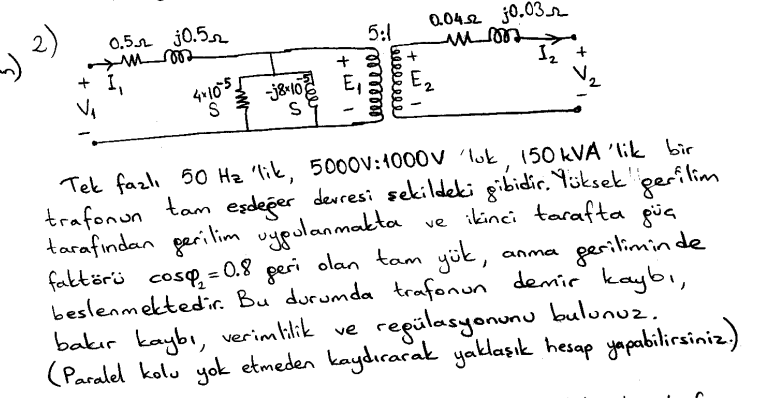 2)
0.5Ω j0.5Ω 5:1 0.04Ω j0.03Ω
+ I₁ + + I₂ +
V₁ 4×10⁻⁵ S -j8×10⁻⁵ S E₁ E₂ V₂
- - - -
Tek fazlı 50 Hz 'lik, 5000V:1000V 'luk, 150 kVA 'lik bir
trafonun tam eşdeğer devresi şekildeki gibidir. Yüksek gerilim
tarafından gerilim uygulanmakta ve ikinci tarafta güç
faktörü cosφ₂=0.8 geri olan tam yük, anma geriliminde
beslenmektedir. Bu durumda trafonun demir kaybı,
bakır kaybı, verimlilik ve regülasyonunu bulunuz.
(Paralel kolu yok etmeden kaydırarak yaklaşık hesap yapabilirsiniz.)